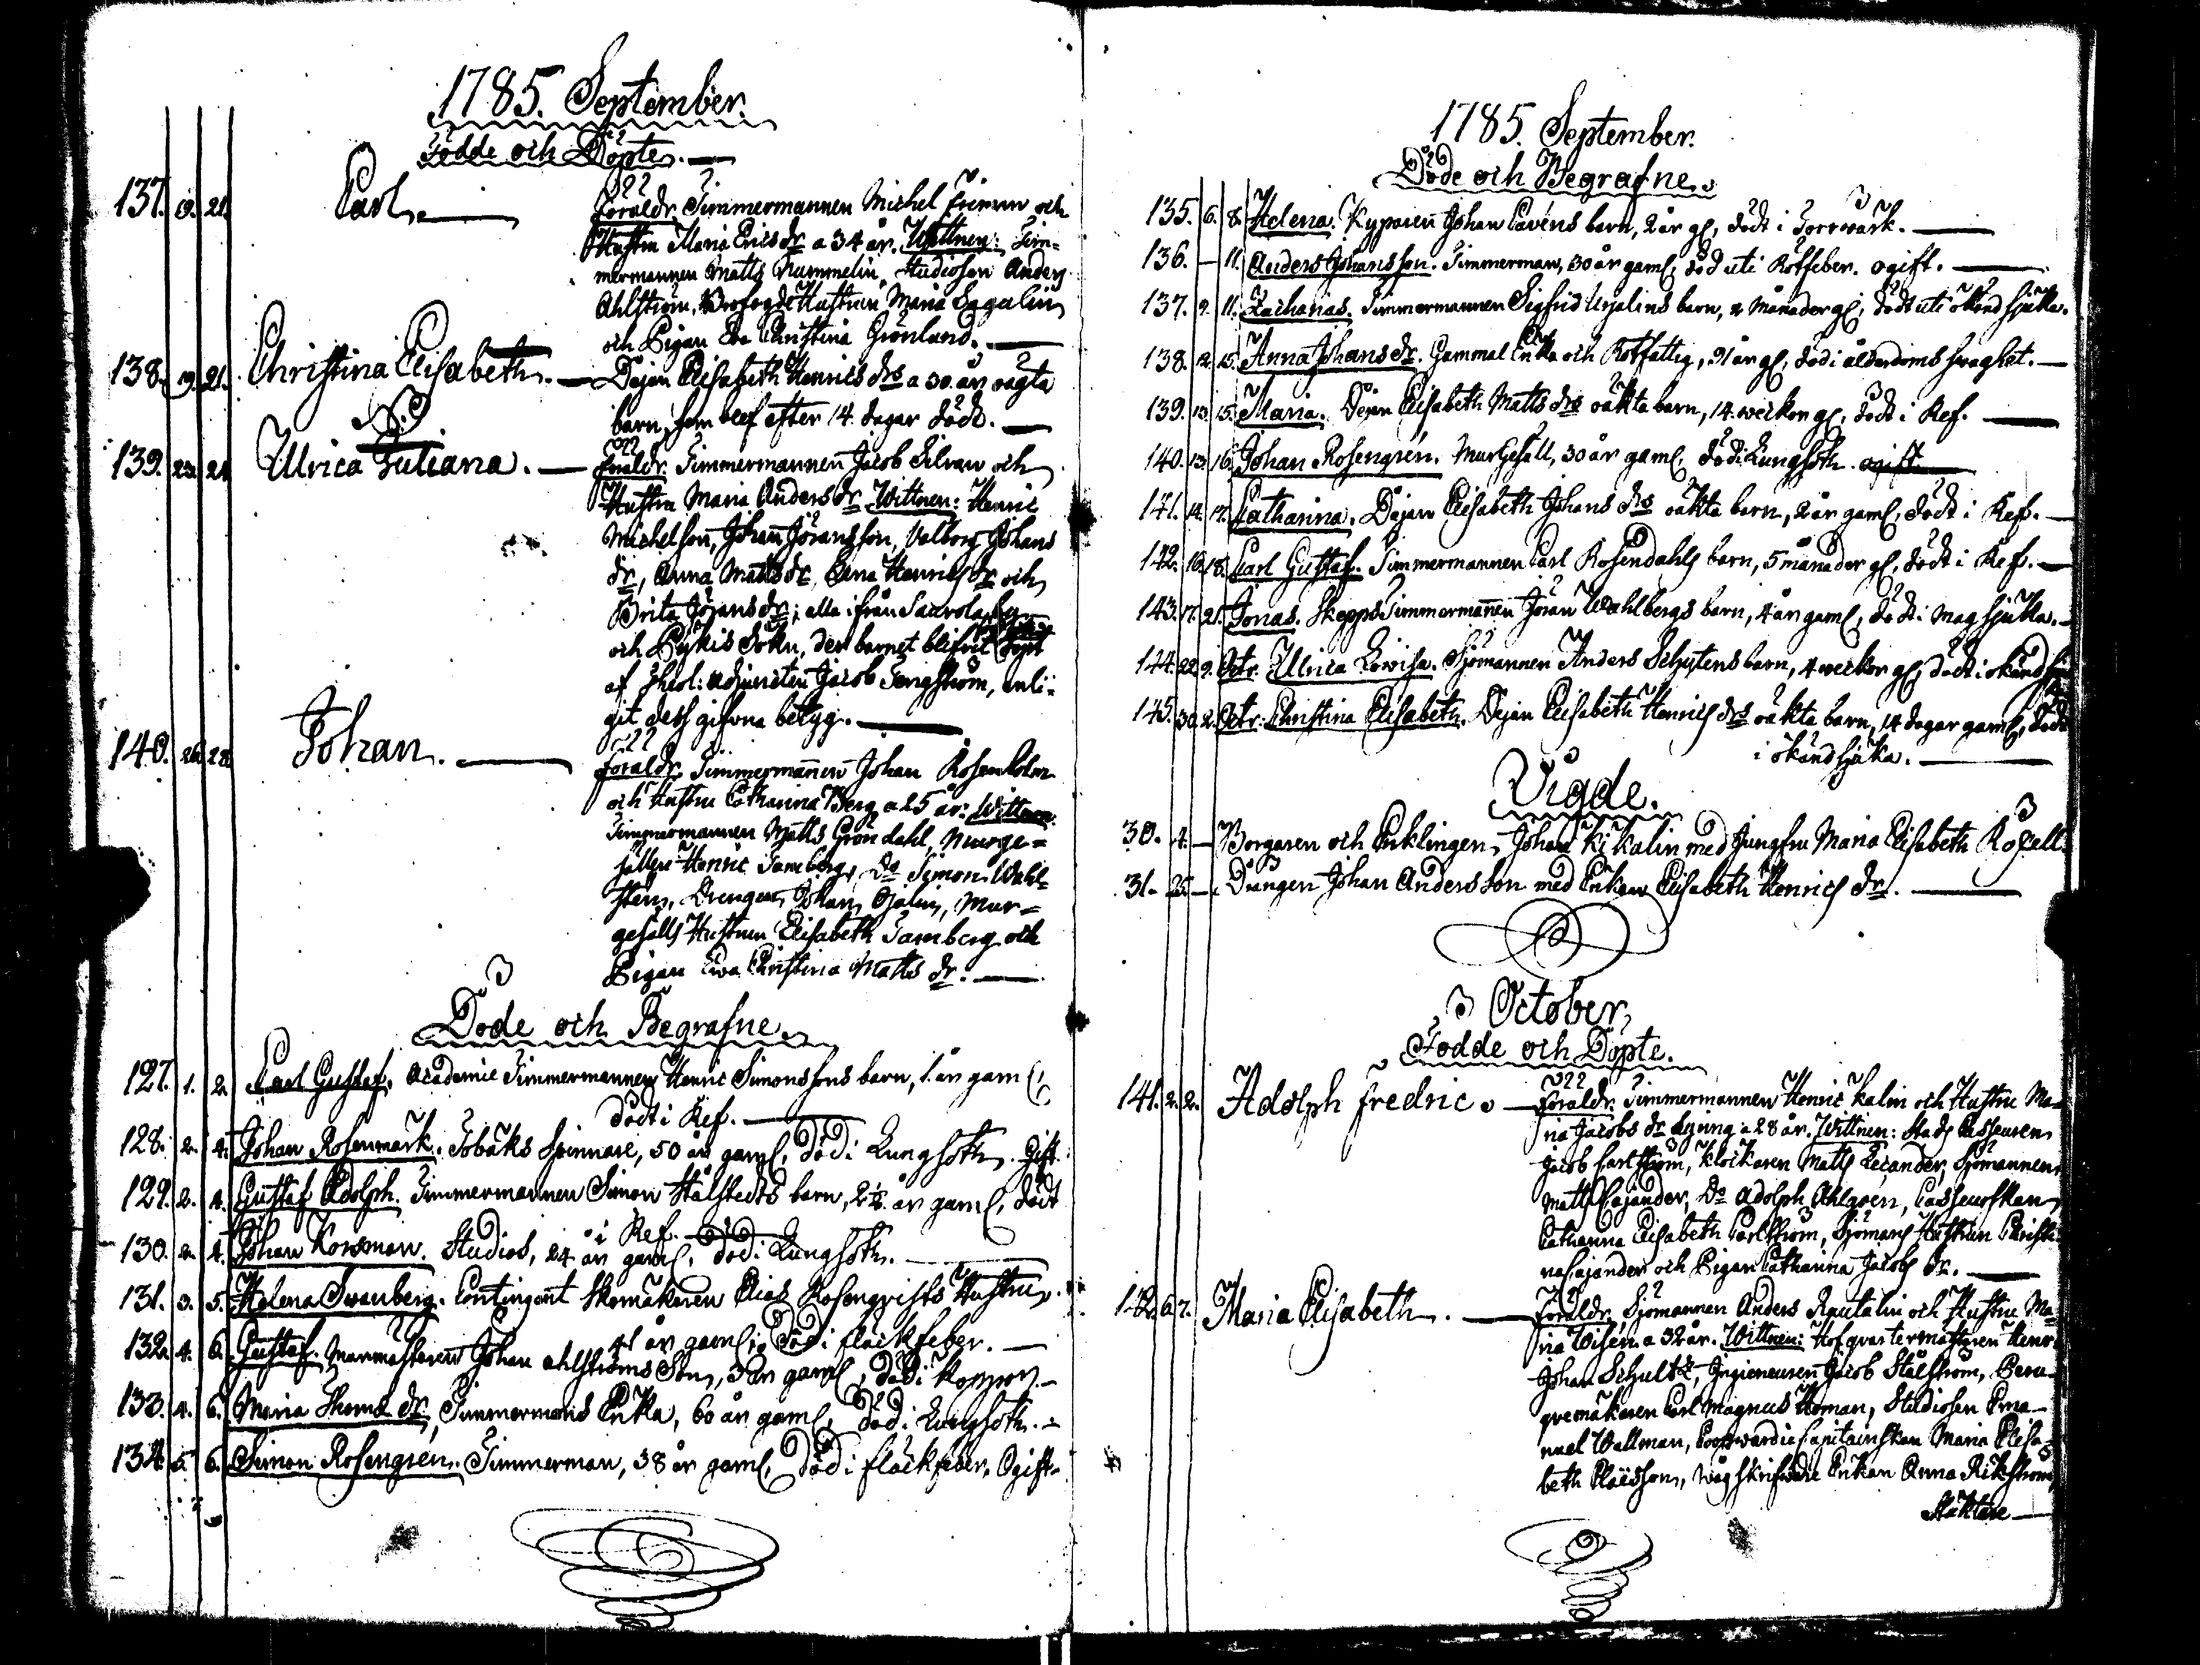 1785. September.
Födde och Döpte.
137. 19. 21. Carl. Föräldr. Timmermannen Michel Friman och
Hustru Maria Erics dr a 34 år. Wittnen: Tim-
mermannen Matts Nummelin, Studiosen Anders
Ahlström, Hustrun Maria Sagulin
och Pigan Eva Christina Grönlund.
138. 19. 21. Christina Elisabeth. Dejan Elisabeth Henrics drs a 30 år oägta
barn, som blef efter 14 dagar dödt.
139. 23. 24. Ulrica Juliana. Föräldr. Timmermannen Jacob Silvan och
Hustru Maria Anders dr Wittnen: Henric
Michelsson, Johan Jöransson, Valborg Johans
dr, Anna Matts dr, Anna Henrics dr och
Brita Jörans dr; alla ifrån
och Pykis Sokn, der barnet blifvit döpt
af Theol: Adjuncten Jacob Tengström, enli-
git dess gifvna betyg.
140. 26. 28. Johan. Föräldr. Timmermannen Johan Rosenholm
och Hustru Catharina Berg a 25 år: Wittnen:
Timmermannen Matts Gröndahl, Murge-
sällen Henric Tamberg, Do Simon Wahl-
sten, Drengen Johan Ojalin, Mur-
gesälls Hustrun Elisabeth Tamberg och
Pigan Ewa Christina Matts dr.
Döde och Begrafne.
127. 1. 2. Carl Gustaf. Academie Timmermannen Henric Simonssons barn, 1. år gam(l,
dödt i Kef.
128. 2. 4. Johan Rosenmark. Tobaks Spinnare, 50 år gaml, död i Lungsoth. Gift.
129. 2. 4. Gustaf Adolph. Timmermannen Simon Stålstedts barn, 2½ år gaml, dödt
i Kef.
130. 2. 4. Johan Korsman. Studios, 24 år gaml. död i Lungsoth.
131. 3. 5. Helena Swanberg. Contingent Skomakaren Elias Rosenqvists Hustru.
41 år gaml; död i fläckfeber.
132. 4. 6. Gustaf. Murmästaren Johan Ahlströms Son, 3 år gaml, död i Koppor.
133. 4. 6. Maria Thomæ dr, Timmermans Enka, 60 år gaml, död i Lungsoth.
134. 5. 6. Simon Rosengren. Timmerman, 38 år gaml, död i fläckfeber. Ogift.
1785. September.
Döde och Begrafne.
135. 6. 8. Helena. Kyparen Johan Cavéns barn, 2 år gl, dödt i Torrwärk.
136. – 11. Anders Johansson. Timmerman, 30 år gaml, död uti Rötfeber. ogift.
137. 9. 11. Zacharias. Timmermannen Sigfrid Urjalins barn, 2 månader gl, dödt uti okänd sjuka.
138. 12. 15. Anna Johans dr. Gammal Enka och Rotfattig, 91 år gl, död i ålderdoms svaghet.
139. 13. 15. Maria. Dejan Elisabeth Matts drs oäkta barn, 14. weckor gl, dödt i Kef.
140. 13. 16. Johan Rosengrén. MurGesäll, 30 år gaml. död i Lungsoth. ogift.
141. 14. 17. Catharina. Dejan Elisabeth Johans drs oäkta barn, 2 år gaml, dödt i Kef.
142. 16. 18. Carl Gustaf. Timmermannen Carl Rosendahls barn, 5 månader gl, dödt i Kef.
143. 17. 21. Jonas. SkeppsTimmermannen Jöran Wahlbergs barn, 4 år gaml, dödt i Magsjuka.
144. 22. 2. Octr. Ulrica Lovisa. Sjömannen Anders Schytens barn, 4 weckor gl, dödt i okänd sju
145. 30. 2. Octr. Christina Elisabeth. Dejan Elisabeth Henrics drs oäkta barn, 14 dagar gaml, dödt
i okänd sjuka.
Vigde.
30. 4. – Borgaren och Enklingen, Johan Kikalin med Jungfru Maria Elisabeth Rosell.
31. 25. – Drängen Johan Andersson med Enkan Elisabeth Henrics dr.
October.
Födde och Döpte.
141. 2. 2. Adolph Fredric. Föräldr. Timmermannen Henric Kalin och Hustru Ma-
ria Jacobs dr a 28 år. Wittnen: Stads Casseuren
Jacob Carlström, Klockaren Matts Lecander, Sjömannen
Matts Cajander, Do Adolph Ahlgrén, Casseurskan
Catharina Elisabeth Carlström, Sjömans Hustrun Christi-
na Cajander och Pigan Catharina Jacobs dr.
142. 6. 7. Maria Elisabeth. Föräldr. Sjömannen Anders Rautalin och Hustru Ma-
ria Wisén a 32 år. Wittnen: Hofqvartermästaren Henr
Johan Schultz, Ingieneuren Jacob Stålström, Peru-
quemakaren Carl Magnus Homan, Studiosen Ema-
nuel Wallman, Coopvardie Capitainskan Maria Elisa-
beth Claesson, Wågskrifvare Enkan Anna Rikström,
Slöktare